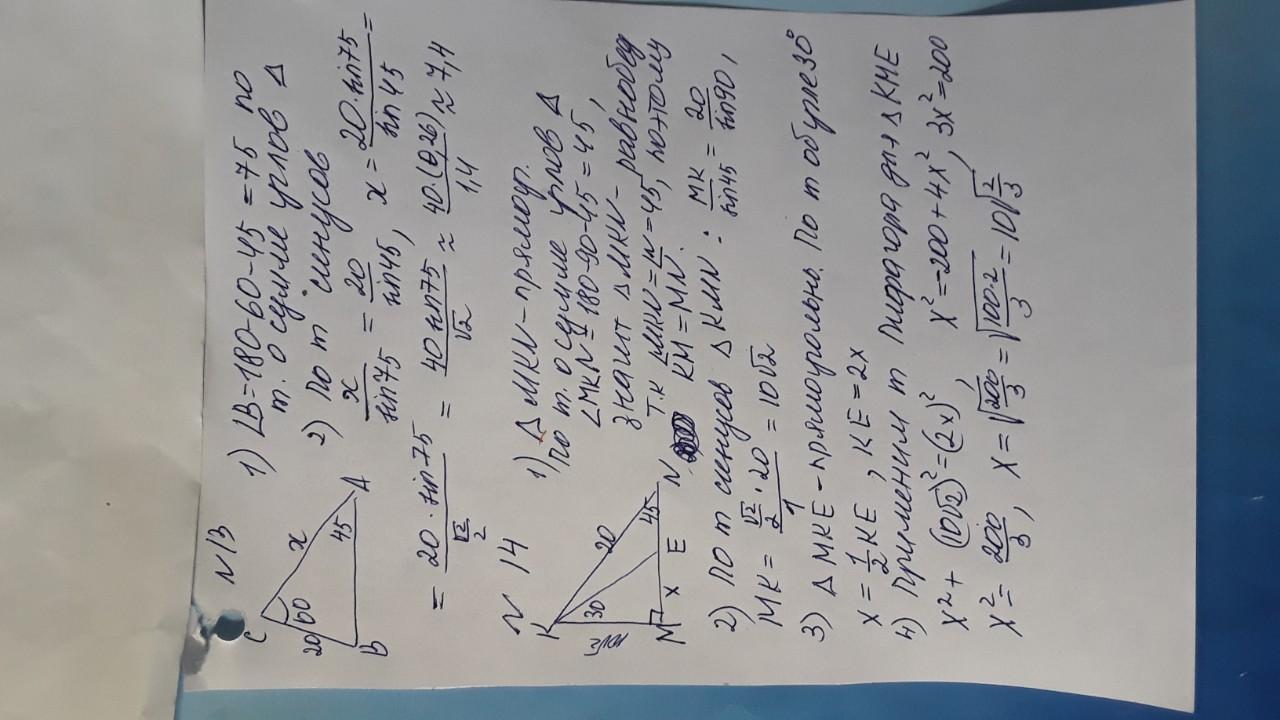 N 13
C
x
60
20
45
B
A
1) ∠B=180-60-45=75 по
т. о сумме углов Δ
2) По т синусов
x/sin75 = 20/sin45, x = 20·sin75/sin45 =
= 20·sin75/(√2/2) = 40 sin75/√2 ≈ 40·(0,26)/1,4 ≈ 7,4
N 14
K
20
30
10√2
45
M
x
E
N
1) Δ MKN-прямоуг.
по т. о сумме углов Δ
∠MKN=180-90-45=45,
значит ΔMKN-равнобед
т.к ∠MKN=∠N=45, поэтому
KM=MN.
2) По т синусов Δ KMN: MK/sin45 = 20/sin90,
MK = (√2/2·20)/1 = 10√2
3) Δ MKE-прямоугольн. По т об угле 30°
x = 1/2 KE, KE=2x
4) Применим т Пифагора для ΔKME
x²+(10√2)²=(2x)², x²=-200+4x², 3x²=200
x²= 200/3, x=√(200/3) = √(100·2/3) = 10√(2/3)